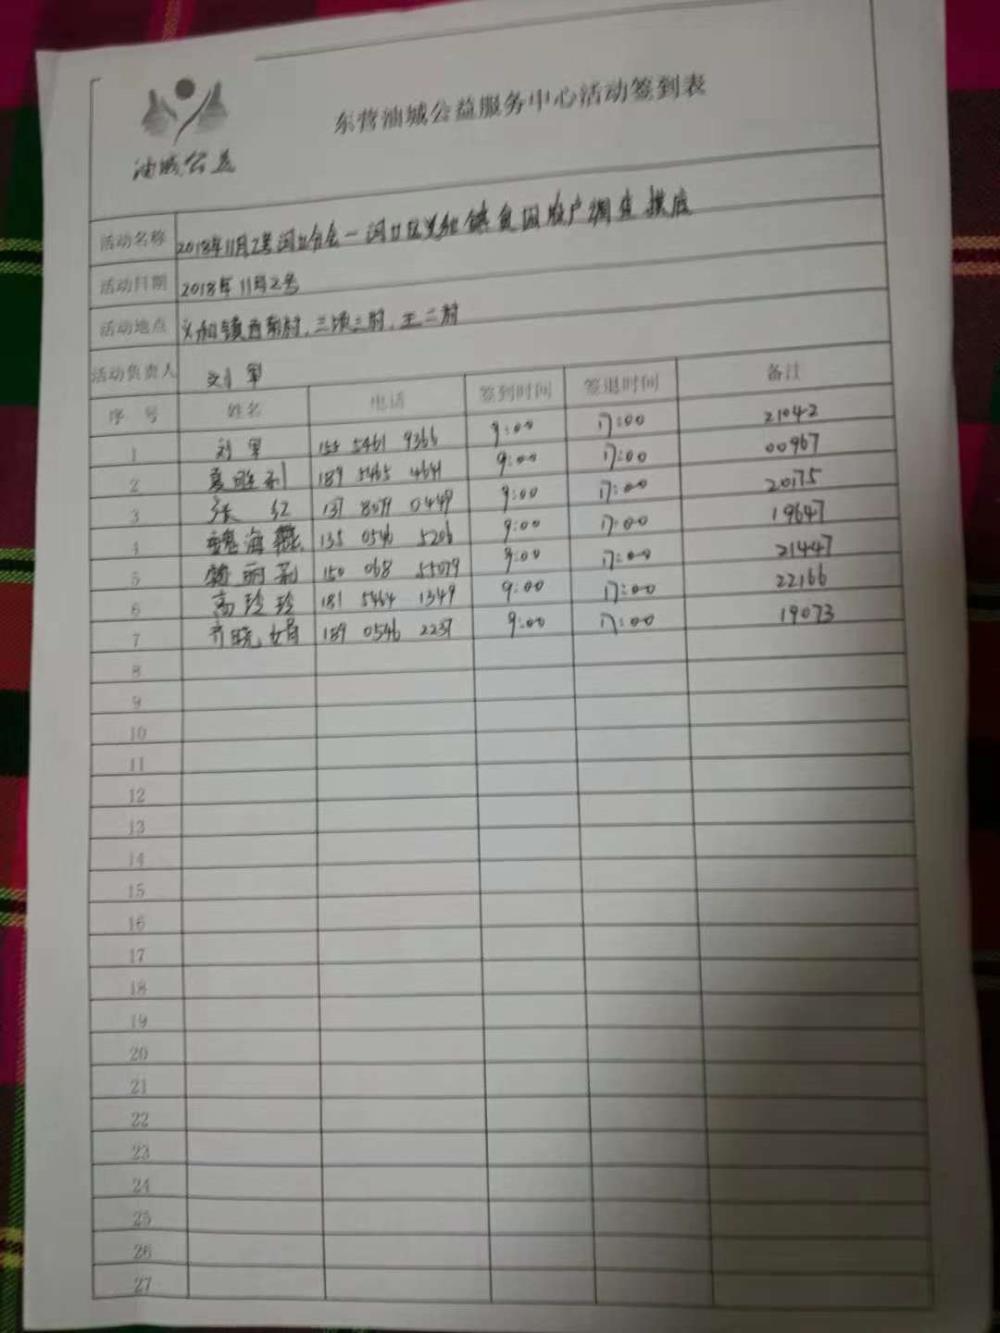 油城公益
东营油城公益服务中心活动签到表
活动名称 2018年11月2号河口分会一河口区义和镇贫困股户调查摸底
活动日期 2018年11月2号
活动地点 义和镇西南村、三顷三村、王二村
活动负责人 刘军
序号 姓名 电话 签到时间 签退时间 备注
1 刘军 155 5461 9366 9:00 17:00 21042
2 夏胜利 189 5465 4641 9:00 17:00 00967
3 张红 137 8079 0449 9:00 17:00 20175
4 魏海燕 135 0546 5206 9:00 17:00 19647
5 丽利 150 068 55079 9:00 17:00 21447
6 高玲玲 181 5464 1349 9:00 17:00 22166
7 齐晓娟 189 0546 2237 9:00 17:00 19073
8
9
10
11
12
13
14
15
16
17
18
19
20
21
22
23
24
25
26
27